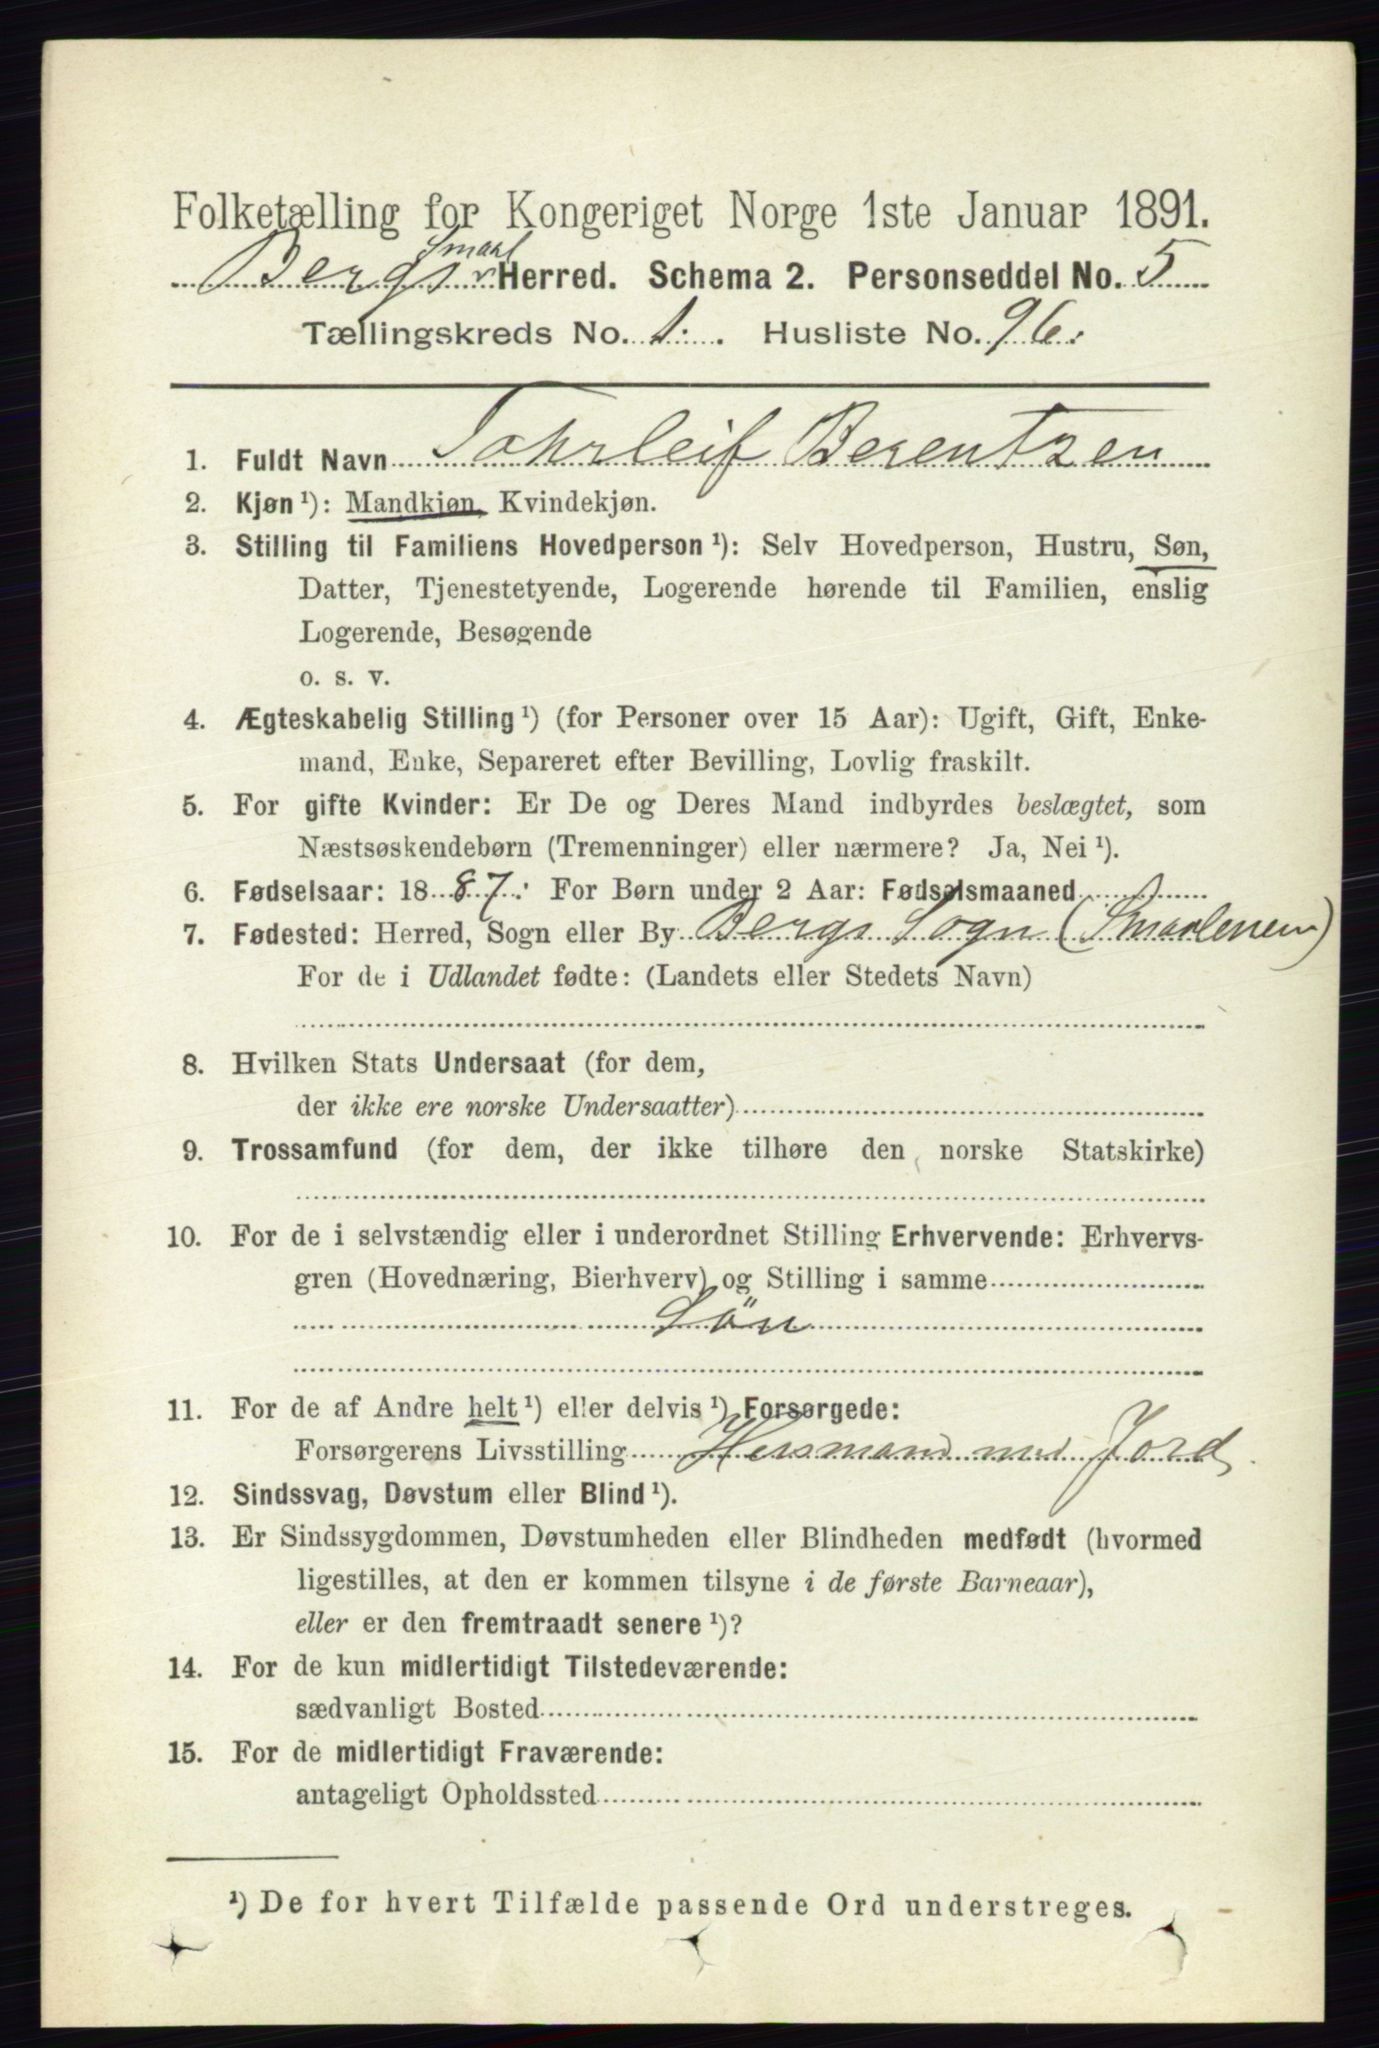 Folketælling for Kongeriget Norge 1ste Januar 1891.
Smaal
Bergs Herred. Schema 2. Personseddel No. 5
Tællingskreds No. 1. Husliste No. 96.
1. Fuldt Navn Tohrleif Berentzen
2. Kjøn ¹): Mandkjøn, Kvindekjøn.
3. Stilling til Familiens Hovedperson ¹): Selv Hovedperson, Hustru, Søn,
Datter, Tjenestetyende, Logerende hørende til Familien, enslig
Logerende, Besøgende
o. s. v.
4. Ægteskabelig Stilling ¹) (for Personer over 15 Aar): Ugift, Gift, Enke-
mand, Enke, Separeret efter Bevilling, Lovlig fraskilt.
5. For gifte Kvinder: Er De og Deres Mand indbyrdes beslægtet, som
Næstsøskendebørn (Tremenninger) eller nærmere? Ja, Nei ¹).
6. Fødselsaar: 1887. For Børn under 2 Aar: Fødselsmaaned
7. Fødested: Herred, Sogn eller By Bergs Sogn (Smaalenene)
For de i Udlandet fødte: (Landets eller Stedets Navn)
8. Hvilken Stats Undersaat (for dem,
der ikke ere norske Undersaatter)
9. Trossamfund (for dem, der ikke tilhøre den norske Statskirke)
10. For de i selvstændig eller i underordnet Stilling Erhvervende: Erhvervs-
gren (Hovednæring, Bierhverv) og Stilling i samme
Sön
11. For de af Andre helt ¹) eller delvis ¹) Forsørgede:
Forsørgerens Livsstilling Husmand med Jord
12. Sindssvag, Døvstum eller Blind ¹).
13. Er Sindssygdommen, Døvstumheden eller Blindheden medfødt (hvormed
ligestilles, at den er kommen tilsyne i de første Barneaar),
eller er den fremtraadt senere ¹)?
14. For de kun midlertidigt Tilstedeværende:
sædvanligt Bosted
15. For de midlertidigt Fraværende:
antageligt Opholdssted
¹) De for hvert Tilfælde passende Ord understreges.